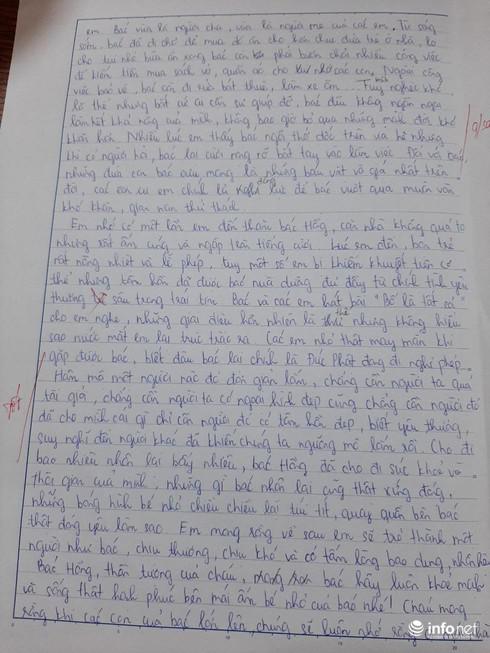 em. Bác vừa là người cha, vừa là người mẹ của các em. Từ sáng
sớm, bác đã đi chợ để mua đồ ăn cho hơn chục đứa trẻ ở nhà, lo
cho tụi nhỏ bữa ăn xong bác còn phải bươn chải nhiều công việc
để kiếm tiền mua sách vở, quần áo cho các con. Ngoài công
việc bảo vệ, bác còn đi sửa bất thuê, làm xe ôm. Tuy nghèo khó
là thế nhưng bất cứ ai cần sự giúp đỡ, bác đều không ngần ngại
làm hết khả năng của mình, không bao giờ bỏ qua những mảnh đời khó
khăn hơn. Nhiều lúc em thấy bác ngồi thở dốc trên vỉa hè nhưng
khi có người hỏi, bác lại cười rạng rỡ bắt tay vào làm việc. Đối với bác,
những đứa con bác cưu mang là những báu vật vô giá nhất trên
đời, các em ấy em chính là động lực để bác vượt qua muôn vàn
khó khăn, gian nan thử thách.
Em nhớ có một lần em đến thăm bác Hồng, căn nhà không quá to
nhưng rất ấm cúng và ngập tràn tiếng cười. Lúc em đến, bọn trẻ
rất năng nhiệt và lễ phép, tuy một số em bị khiếm khuyết trên cơ
thể nhưng tâm hồn đã được bác nuôi dưỡng đủ đầy từ chính tình yêu
thương sâu trong trái tim. Bác và các em hát bài "Bố là tất cả"
cho em nghe, những giai điệu hồn nhiên là thế nhưng không hiểu
sao nước mắt em lại trực trào ra. Các em nhỏ thật may mắn khi
gặp được bác, biết đâu bác lại chính là Đức Phật đang đi nghỉ phép.
Hâm mộ một người nào đó đơn giản lắm, chẳng cần người ta quá
tài giỏi, chẳng cần người ta có ngoại hình đẹp cũng chẳng cần người đó
đã cho mình cái gì chỉ cần người đó có tâm hồn đẹp, biết yêu thương,
suy nghĩ đến người khác đã khiến chúng ta ngưỡng mộ lắm rồi. Cho đi
bao nhiêu nhận lại bấy nhiêu, bác Hồng đã cho đi sức khoẻ và
thời gian của mình, nhưng gì bác nhận lại cũng thật xứng đáng,
những bóng hình bé nhỏ chiều chiều lại tíu tít, quây quần bên bác
thật đáng yêu làm sao. Em mong rằng về sau em sẽ trở thành một
người như bác, chịu thương, chịu khó và có tấm lòng bao dung, nhân hậu.
Bác Hồng, thần tượng của cháu, mong bác hãy luôn khoẻ mạnh
và sống thật hạnh phúc bên mái ấm bé nhỏ của bác nhé! Cháu mong
rằng khi các con của bác lớn lên, chúng sẽ luôn nhớ rằng
infonet